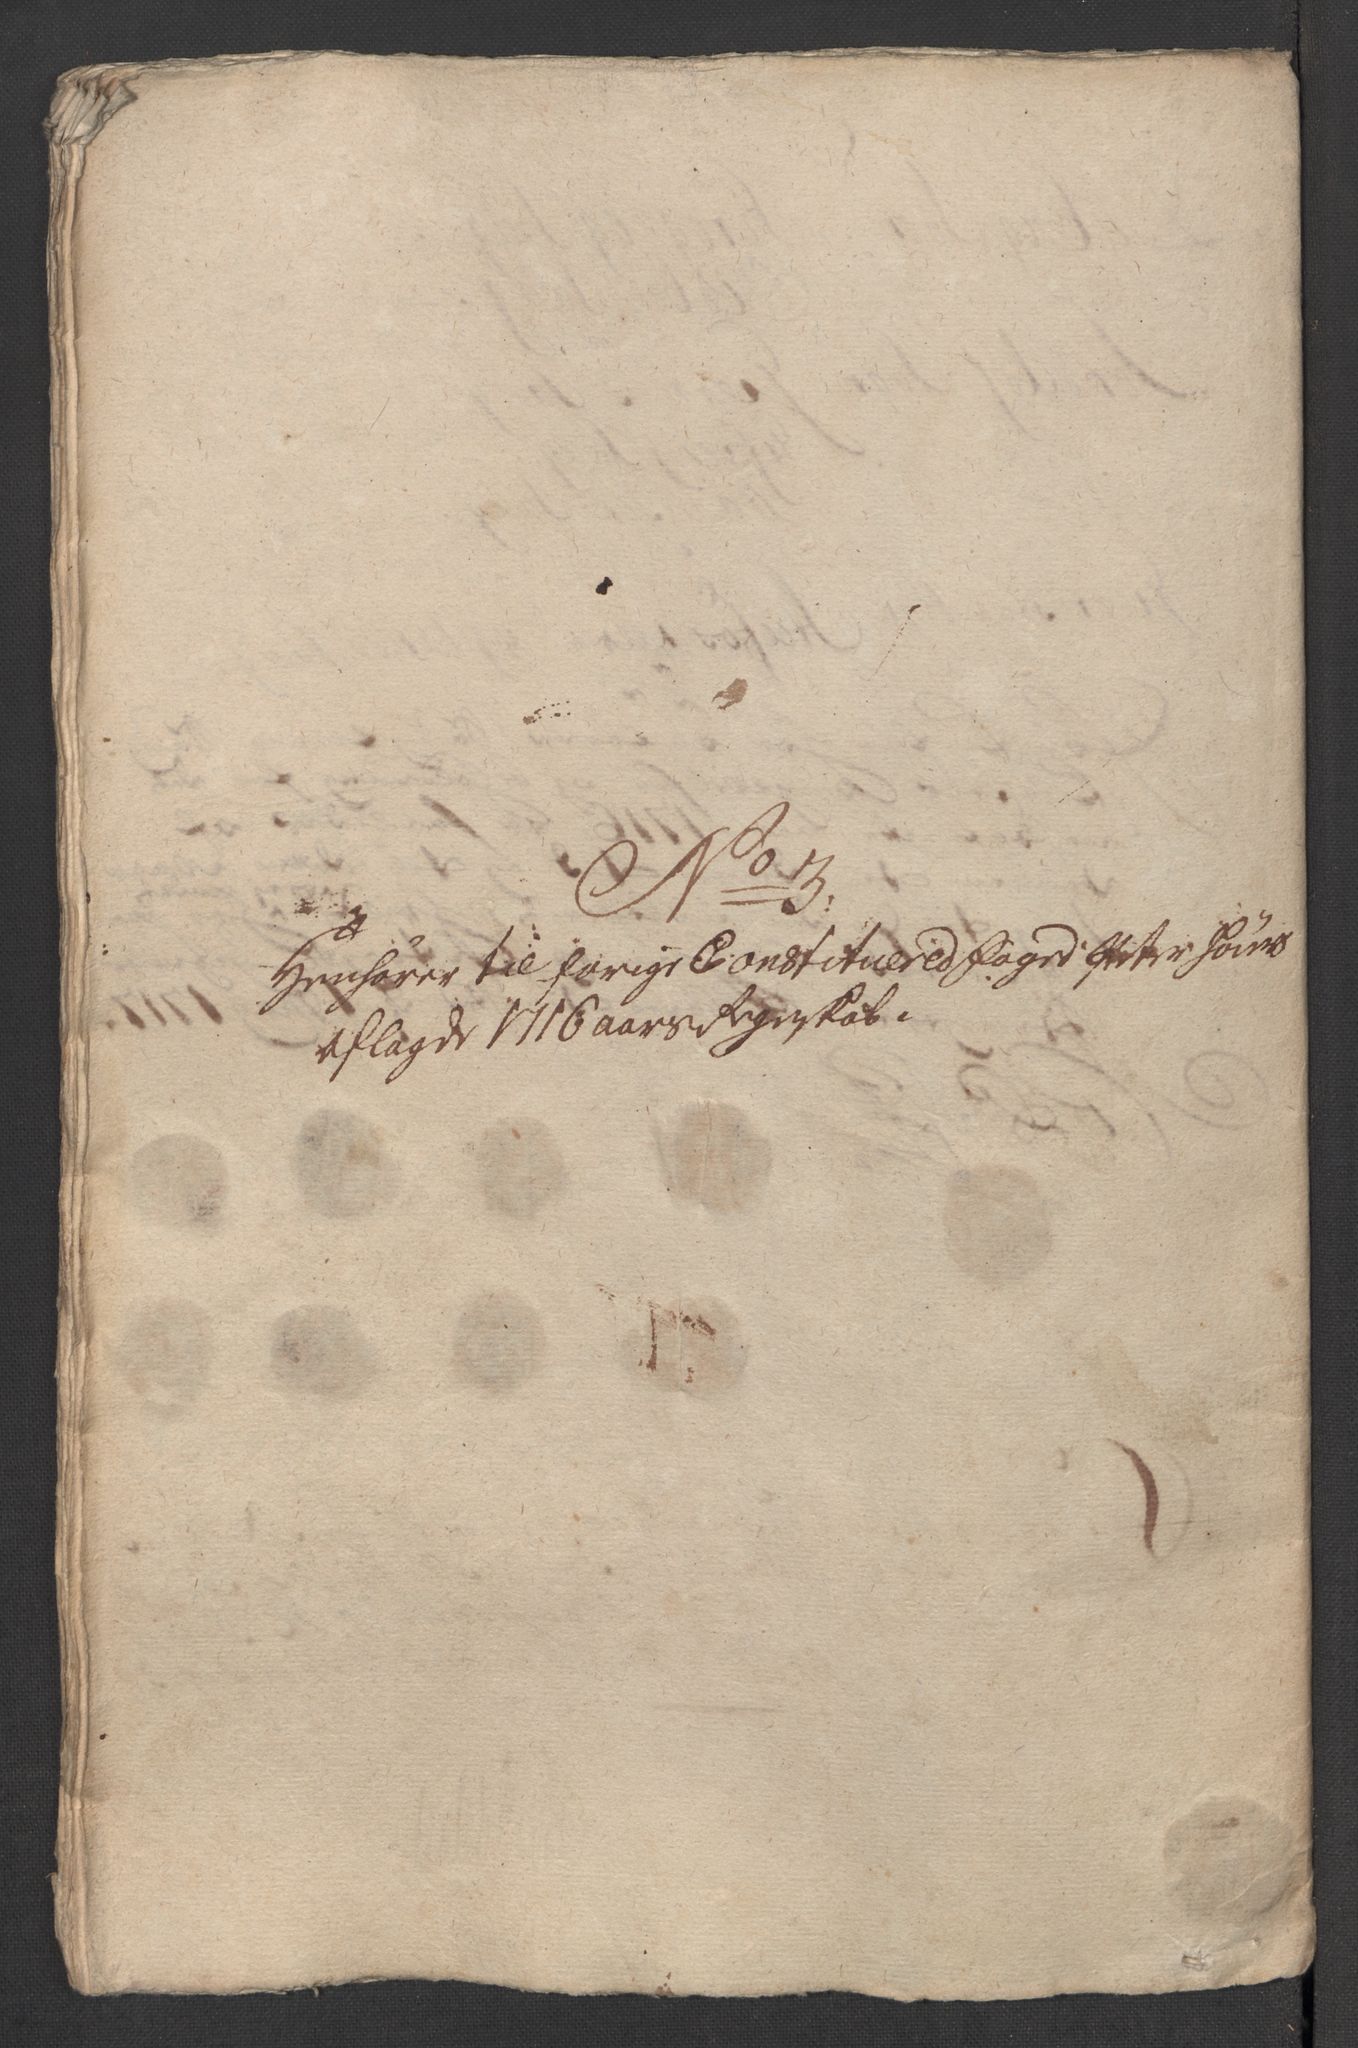 No 3.
Henhører til forige Constituered foged Peter
aflagde 1716 aars Regenskab.